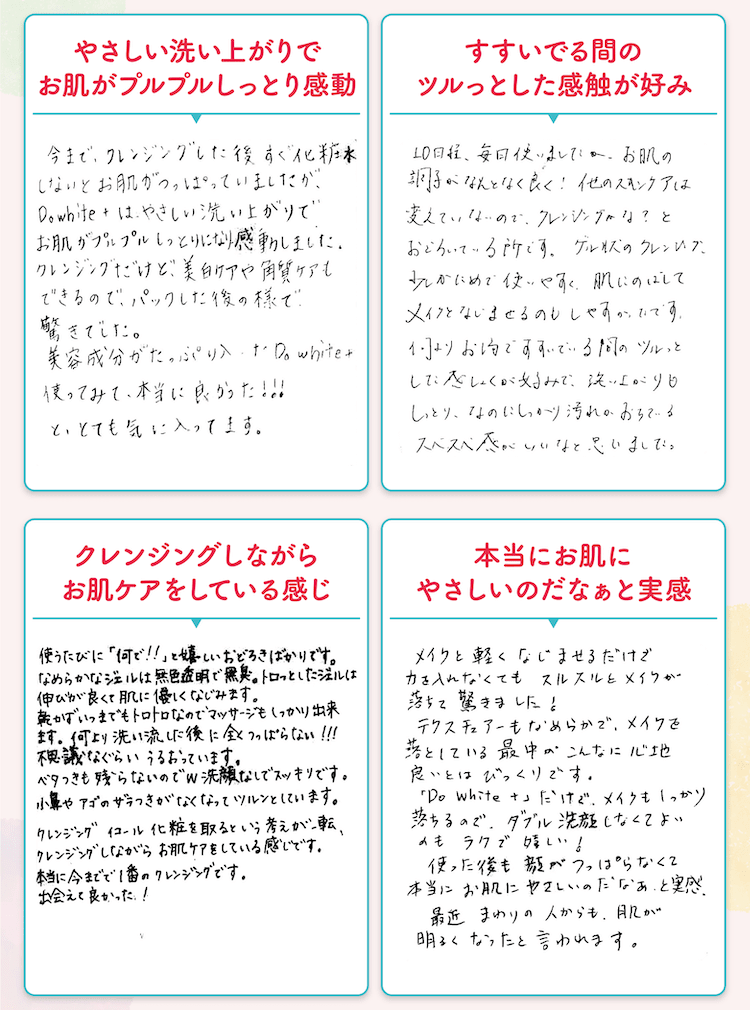 やさしい洗い上がりで
お肌がプルプルしっとり感動
今まで、クレンジングした後 すぐ化粧水
しないとお肌がつっぱっていましたが、
Do white + は、やさしい洗い上がりで
お肌がプルプルしっとりになり感動しました。
クレンジングだけど、美白ケアや角質ケアも
できるので、パックした後の様で
驚きでした。
美容成分がたっぷり入った Do white +
使ってみて、本当に良かった!!!
と、とても気に入ってます。
すすいでる間の
ツルっとした感触が好み
10日程、毎日使いましたが、お肌の
調子がなんとなく良く! 他のスキンケアは
変えていないので、クレンジングかな? と
おどろいている所です。 ゲル状のクレンジング、
少しかためで使いやすく、肌にのばして
メイクとなじませるのもしやすかったです。
何よりお湯ですすいでいる間のツルっと
した感しょくが好みで、洗い上がりも
しっとり、なのにしっかり汚れがおちている
スベスベ感がいいなと思いました。
クレンジングしながら
お肌ケアをしている感じ
使うたびに「何で!!」と嬉しいおどろきばかりです。
なめらかなジェルは無色透明で無臭。トロッとしたジェルは
伸びが良くて肌に優しくなじみます。
乾かずいつまでもトロトロなのでマッサージもしっかり出来
ます。何より洗い流した後に全くつっぱらない!!!
不思議なぐらい うるおっています。
ベタつきも残らないのでW洗顔なしでスッキリです。
小鼻やアゴのザラつきがなくなってツルンとしています。
クレンジング イコール 化粧を取るという考えが一転、
クレンジングしながら お肌ケアをしている感じです。
本当に今までで1番のクレンジングです。
出会えて良かった!
本当にお肌に
やさしいのだなぁと実感
メイクと軽くなじませるだけで
力を入れなくても スルスルとメイクが
落ちて 驚きました!
テクスチュアーもなめらかで、メイクを
落としている 最中が こんなに心地
良いとは びっくりです。
「Do White +」だけで、メイクもしっかり
落ちるので、ダブル洗顔しなくてよい
のも ラクで 嬉しい!
使った後も 顔がつっぱらなくて
本当に お肌にやさしいのだなあ、と実感、
最近 まわりの 人からも、肌が
明るくなったと言われます。